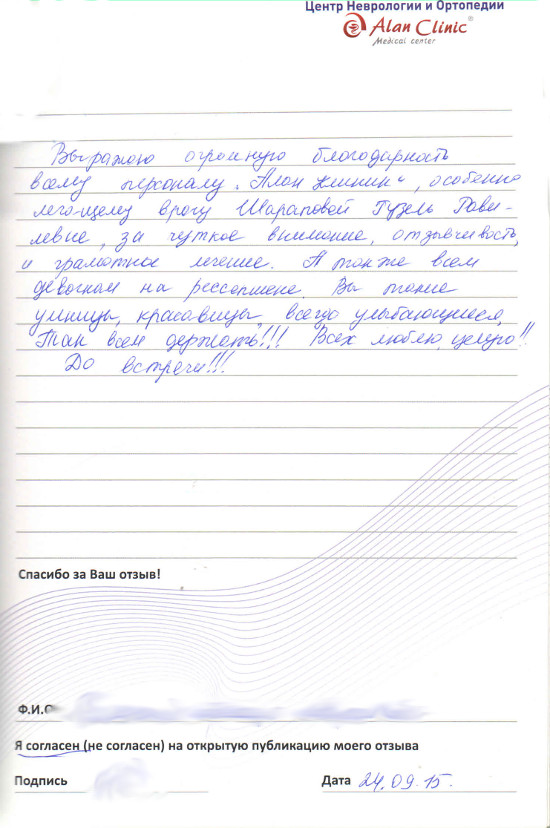 Центр Неврологии и Ортопедии
Alan Clinic
Medical center
Выражаю огромную благодарность
всему персоналу „Алан клиник“, особенно
леч-щему врачу Шараповой Гузель Рави-
левне, за чуткое внимание, отзывчивость,
и грамотное лечение. А также всем
девочкам на рессепшене Вы такие
умницы, красавицы, всегда улыбающиеся,
Так всем держать!!! Всех люблю, целую!!
До встречи!!!
Спасибо за Ваш отзыв!
Ф.И.О
Я согласен (не согласен) на открытую публикацию моего отзыва
Подпись
Дата 24.09.15.